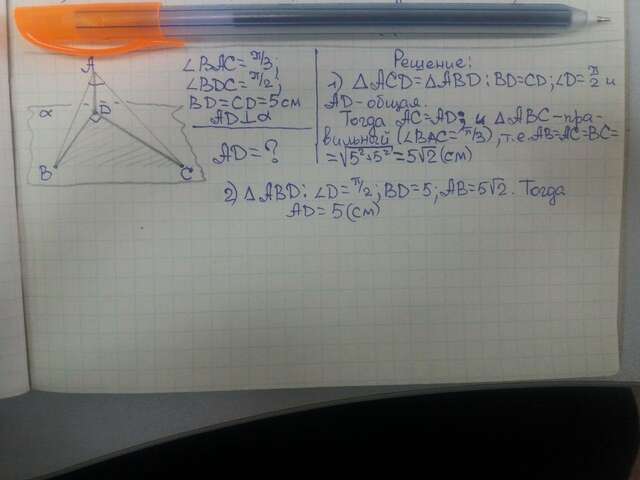 A
α
D
B
C
∠BAC = π/3;
∠BDC = π/2;
BD = CD = 5 см
AD ⊥ α
AD = ?
Решение:
1) △ACD = △ABD: BD = CD; ∠D = π/2 и
AD - общая.
Тогда AC = AD; и △ABC - пра-
вильный (∠BAC = π/3), т.е. AB = AC = BC =
= √(5² + 5²) = 5√2 (см)
2) △ABD: ∠D = π/2; BD = 5; AB = 5√2. Тогда
AD = 5 (см)